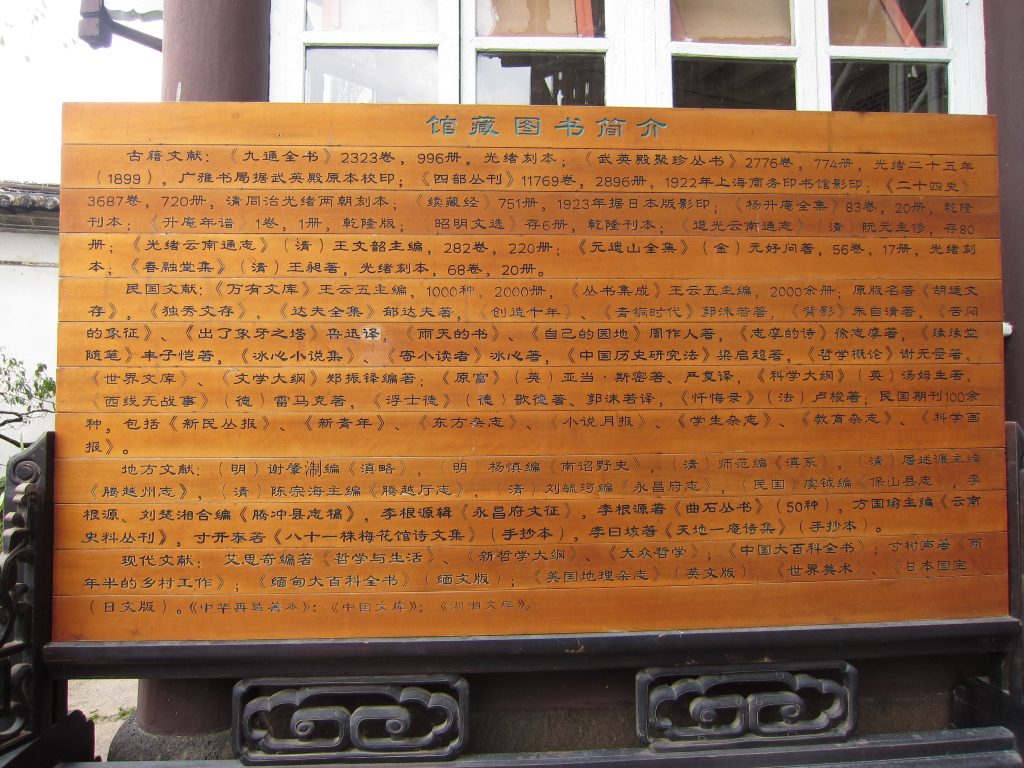 馆藏图书简介
古籍文献：《九通全书》2323卷，996册，光绪刻本；《武英殿聚珍丛书》2776卷，774册，光绪二十五年
（1899），广雅书局据武英殿原本校印；《四部丛刊》11769卷，2896册，1922年上海商务印书馆影印；《二十四史》
3687卷，720册，清同治光绪两朝刻本；《续藏经》751册，1923年据日本版影印；《杨升庵全集》83卷，20册，乾隆
刊本；《升庵年谱》1卷，1册，乾隆版；《昭明文选》存6册，乾隆刊本；《道光云南通志》（清）阮元主修，存80
册；《光绪云南通志》（清）王文韶主编，282卷，220册；《元遗山全集》（金）元好问著，56卷，17册，光绪刻
本；《春融堂集》（清）王昶著，光绪刻本，68卷，20册。
民国文献：《万有文库》王云五主编，1000种，2000册，《丛书集成》王云五主编，2000余册；原版名著《胡适文
存》，《独秀文存》，《达夫全集》郁达夫著，《创造十年》、《青铜时代》郭沫若著，《背影》朱自清著，《苦闷
的象征》、《出了象牙之塔》鲁迅译，《雨天的书》、《自己的园地》周作人著，《志摩的诗》徐志摩著，《缘缘堂
随笔》丰子恺著，《冰心小说集》、《寄小读者》冰心著，《中国历史研究法》梁启超著，《哲学概论》谢无量著，
《世界文库》、《文学大纲》郑振铎编著；《原富》（英）亚当·斯密著、严复译，《科学大纲》（英）汤姆生著，
《西线无战事》（德）雷马克著，《浮士德》（德）歌德著、郭沫若译，《忏悔录》（法）卢梭著；民国期刊100余
种，包括《新民丛报》、《新青年》、《东方杂志》、《小说月报》、《学生杂志》、《教育杂志》、《科学画
报》。
地方文献：（明）谢肇淛编《滇略》，（明）杨慎编《南诏野史》，（清）师范编《滇系》，（清）屠述濂主编
《腾越州志》，（清）陈宗海主编《腾越厅志》，（清）刘毓珂编《永昌府志》，（民国）编《保山县志》，李
根源、刘楚湘合编《腾冲县志稿》，李根源辑《永昌府文征》，李根源著《曲石丛书》（50种），方国瑜主编《云南
史料丛刊》，寸开泰著《八十一株梅花馆诗文集》（手抄本），李曰垓著《天地一庵诗集》（手抄本）。
现代文献：艾思奇编著《哲学与生活》、《新哲学大纲》、《大众哲学》；《中国大百科全书》；寸树声著《两
年半的乡村工作》；《缅甸大百科全书》（缅文版）；《英国地理杂志》（英文版）；《世界美术》、《日本国宝》
（日文版）。《中华再造善本》；《中国文库》；《湖湘文库》。